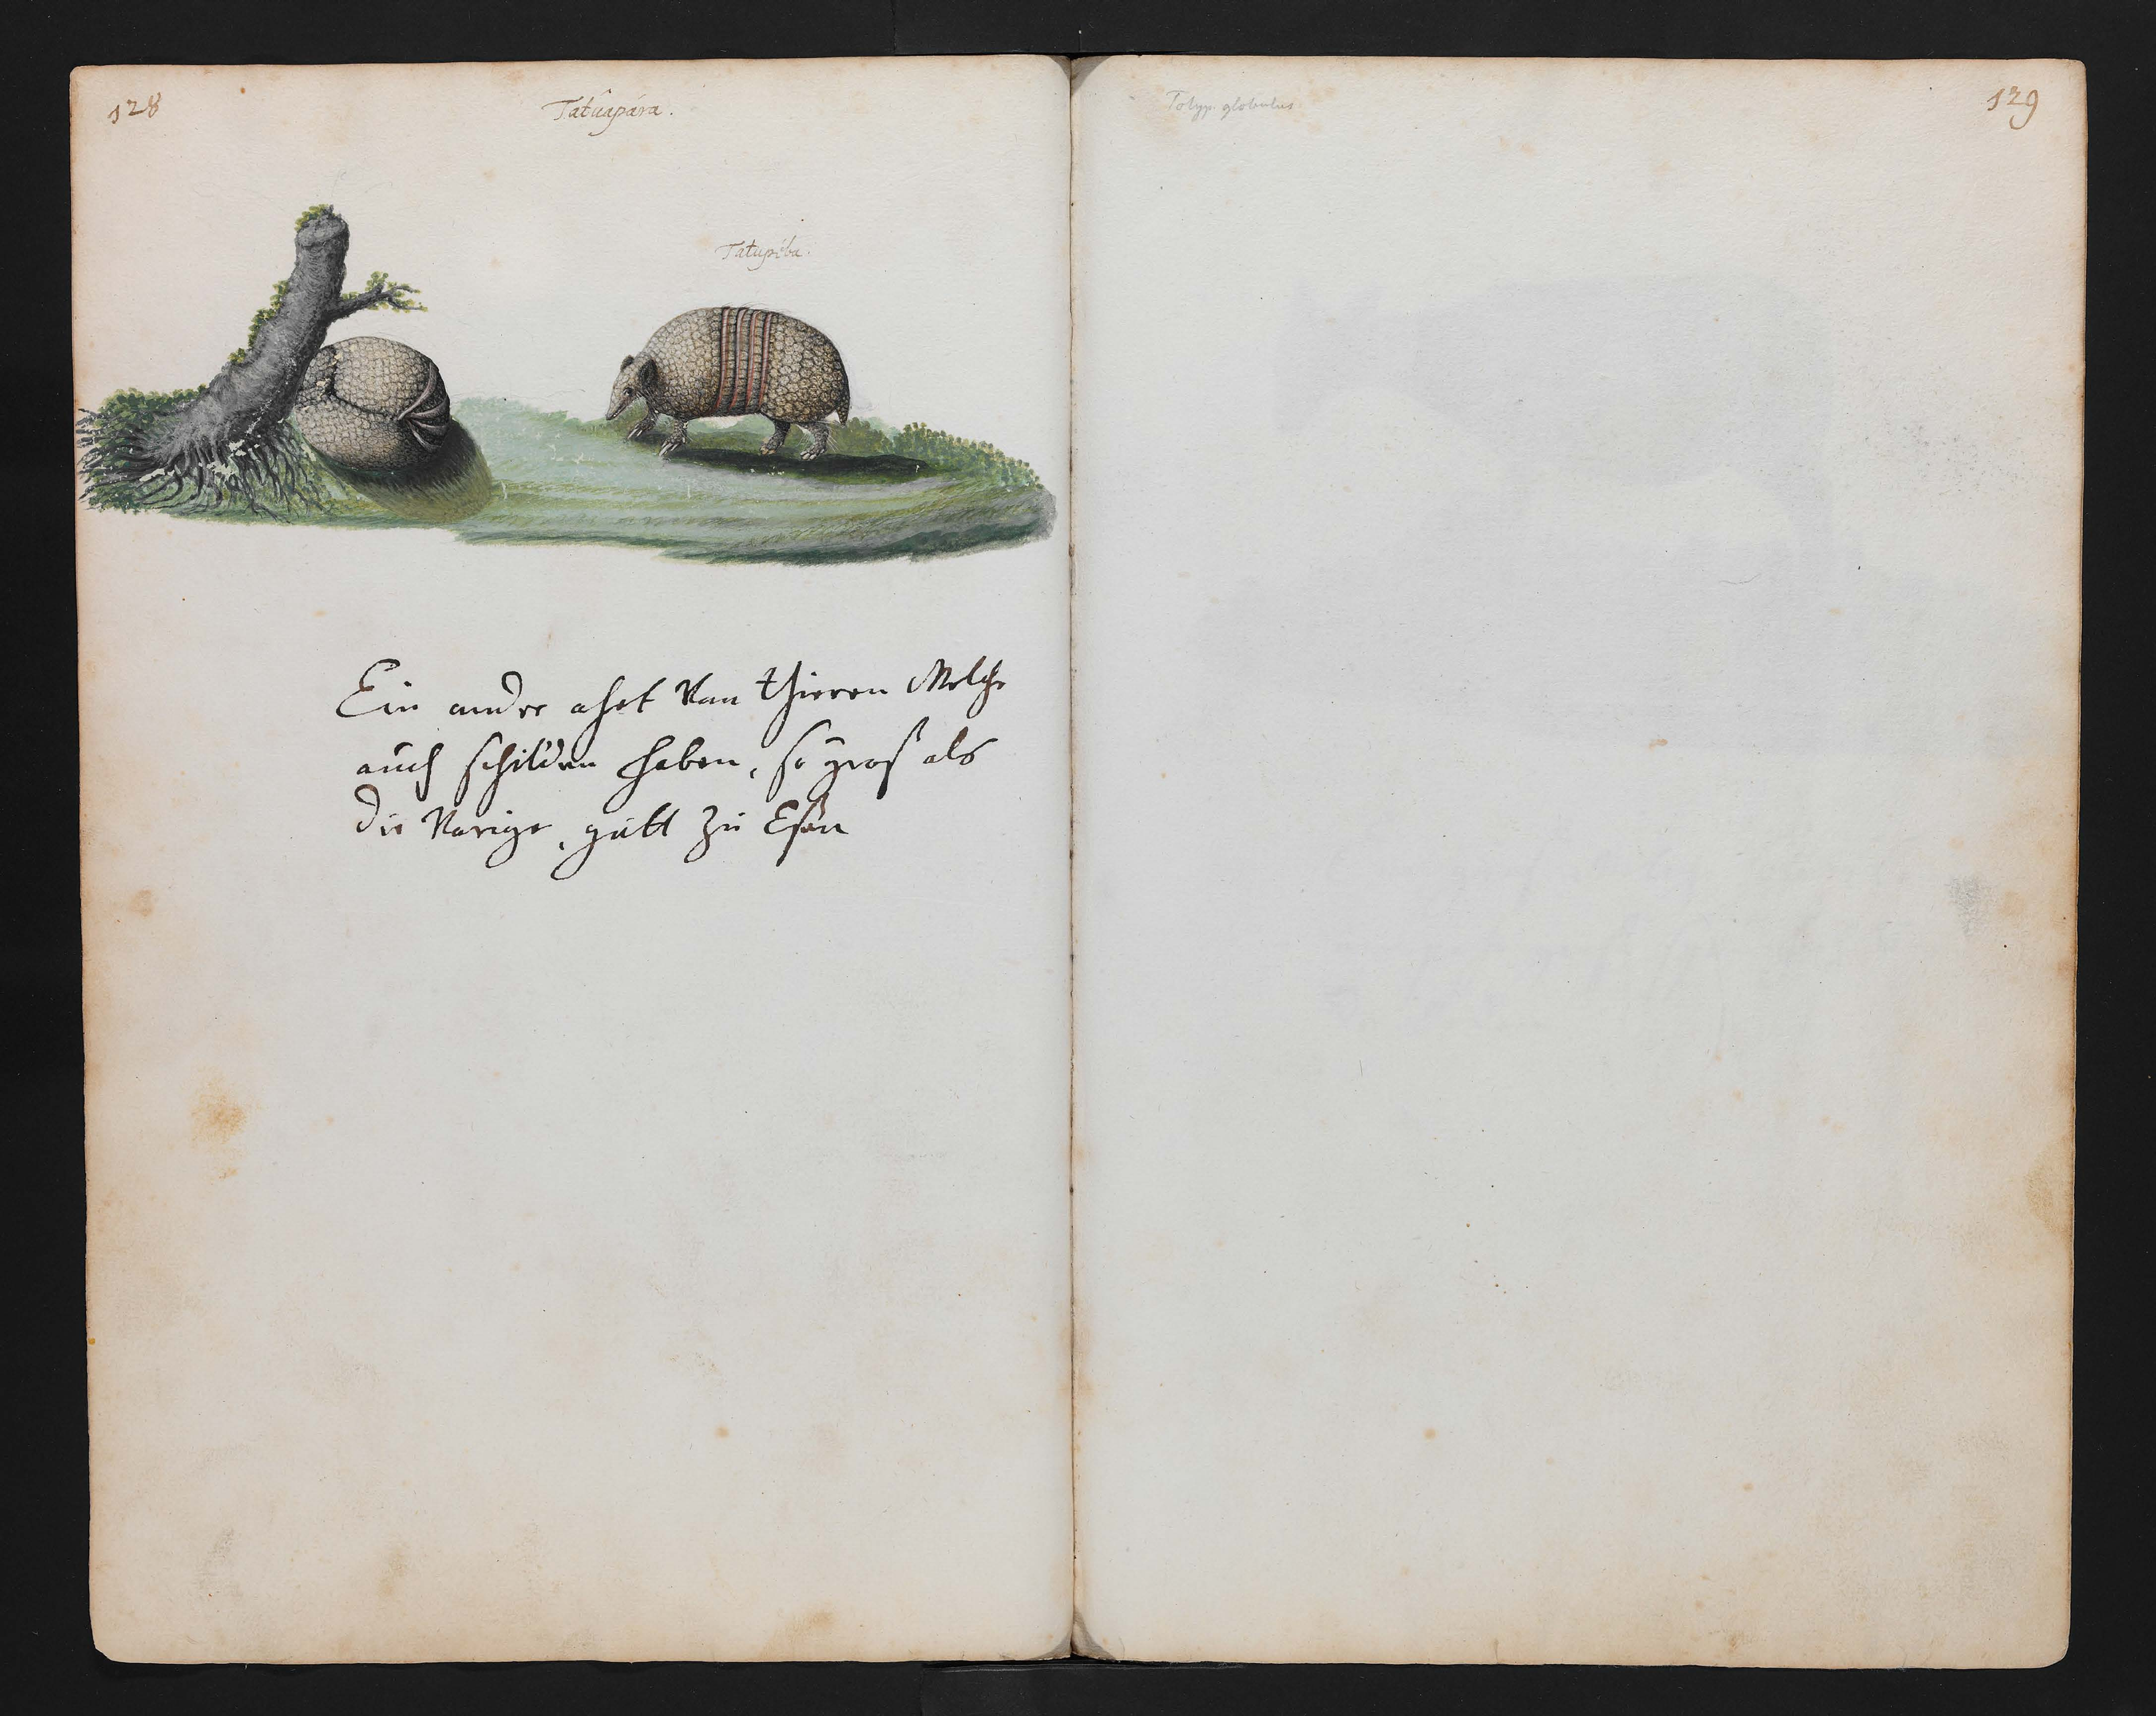 128
Tatûapára.
Tatupéba.
Ein andre ahrt Von thieren Welche
auch schilden haben, so groß als
die Vorige, gutt zu Eßen
Tolyp. globulus.
129